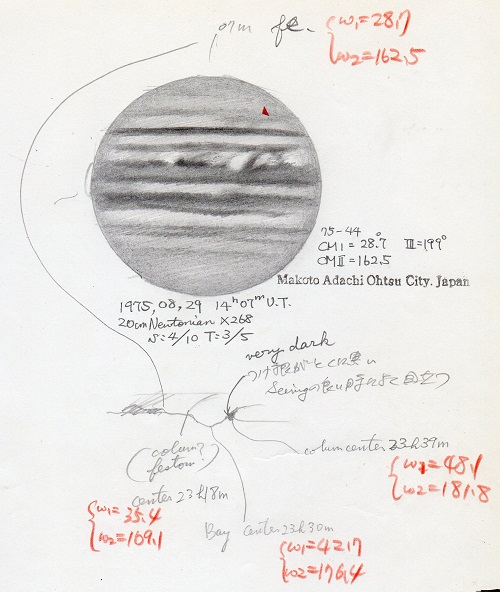 07m fe.
ω1=28.7
ω2=162.5
75-44
CM I = 28.°7 III=199°
CM II = 162.5
Makoto Adachi Ohtsu City. Japan
1975, 08, 29 14h07m U.T.
20cm Newtonian ×268
S:4/10 T=3/5
very dark
つけ根がとくに黒い
Seeingの良い時になると目立つ
colum center 23h39m
ω1=48.1
ω2=181.8
(colum?
festoon?)
center 23h18m
ω1=35.4
ω2=169.1
Bay center 23h30m
ω1=42.7
ω2=176.4